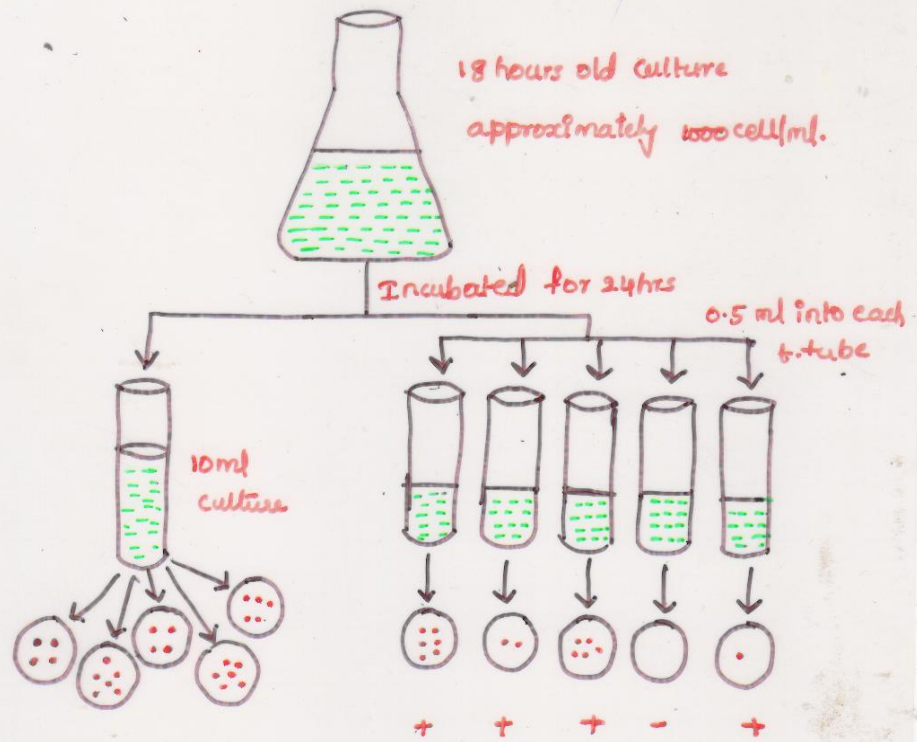 18 hours old culture
approximately 1000 cell/ml.
Incubated for 24hrs
0.5 ml into each
t.tube
10ml
culture
+ + + - +